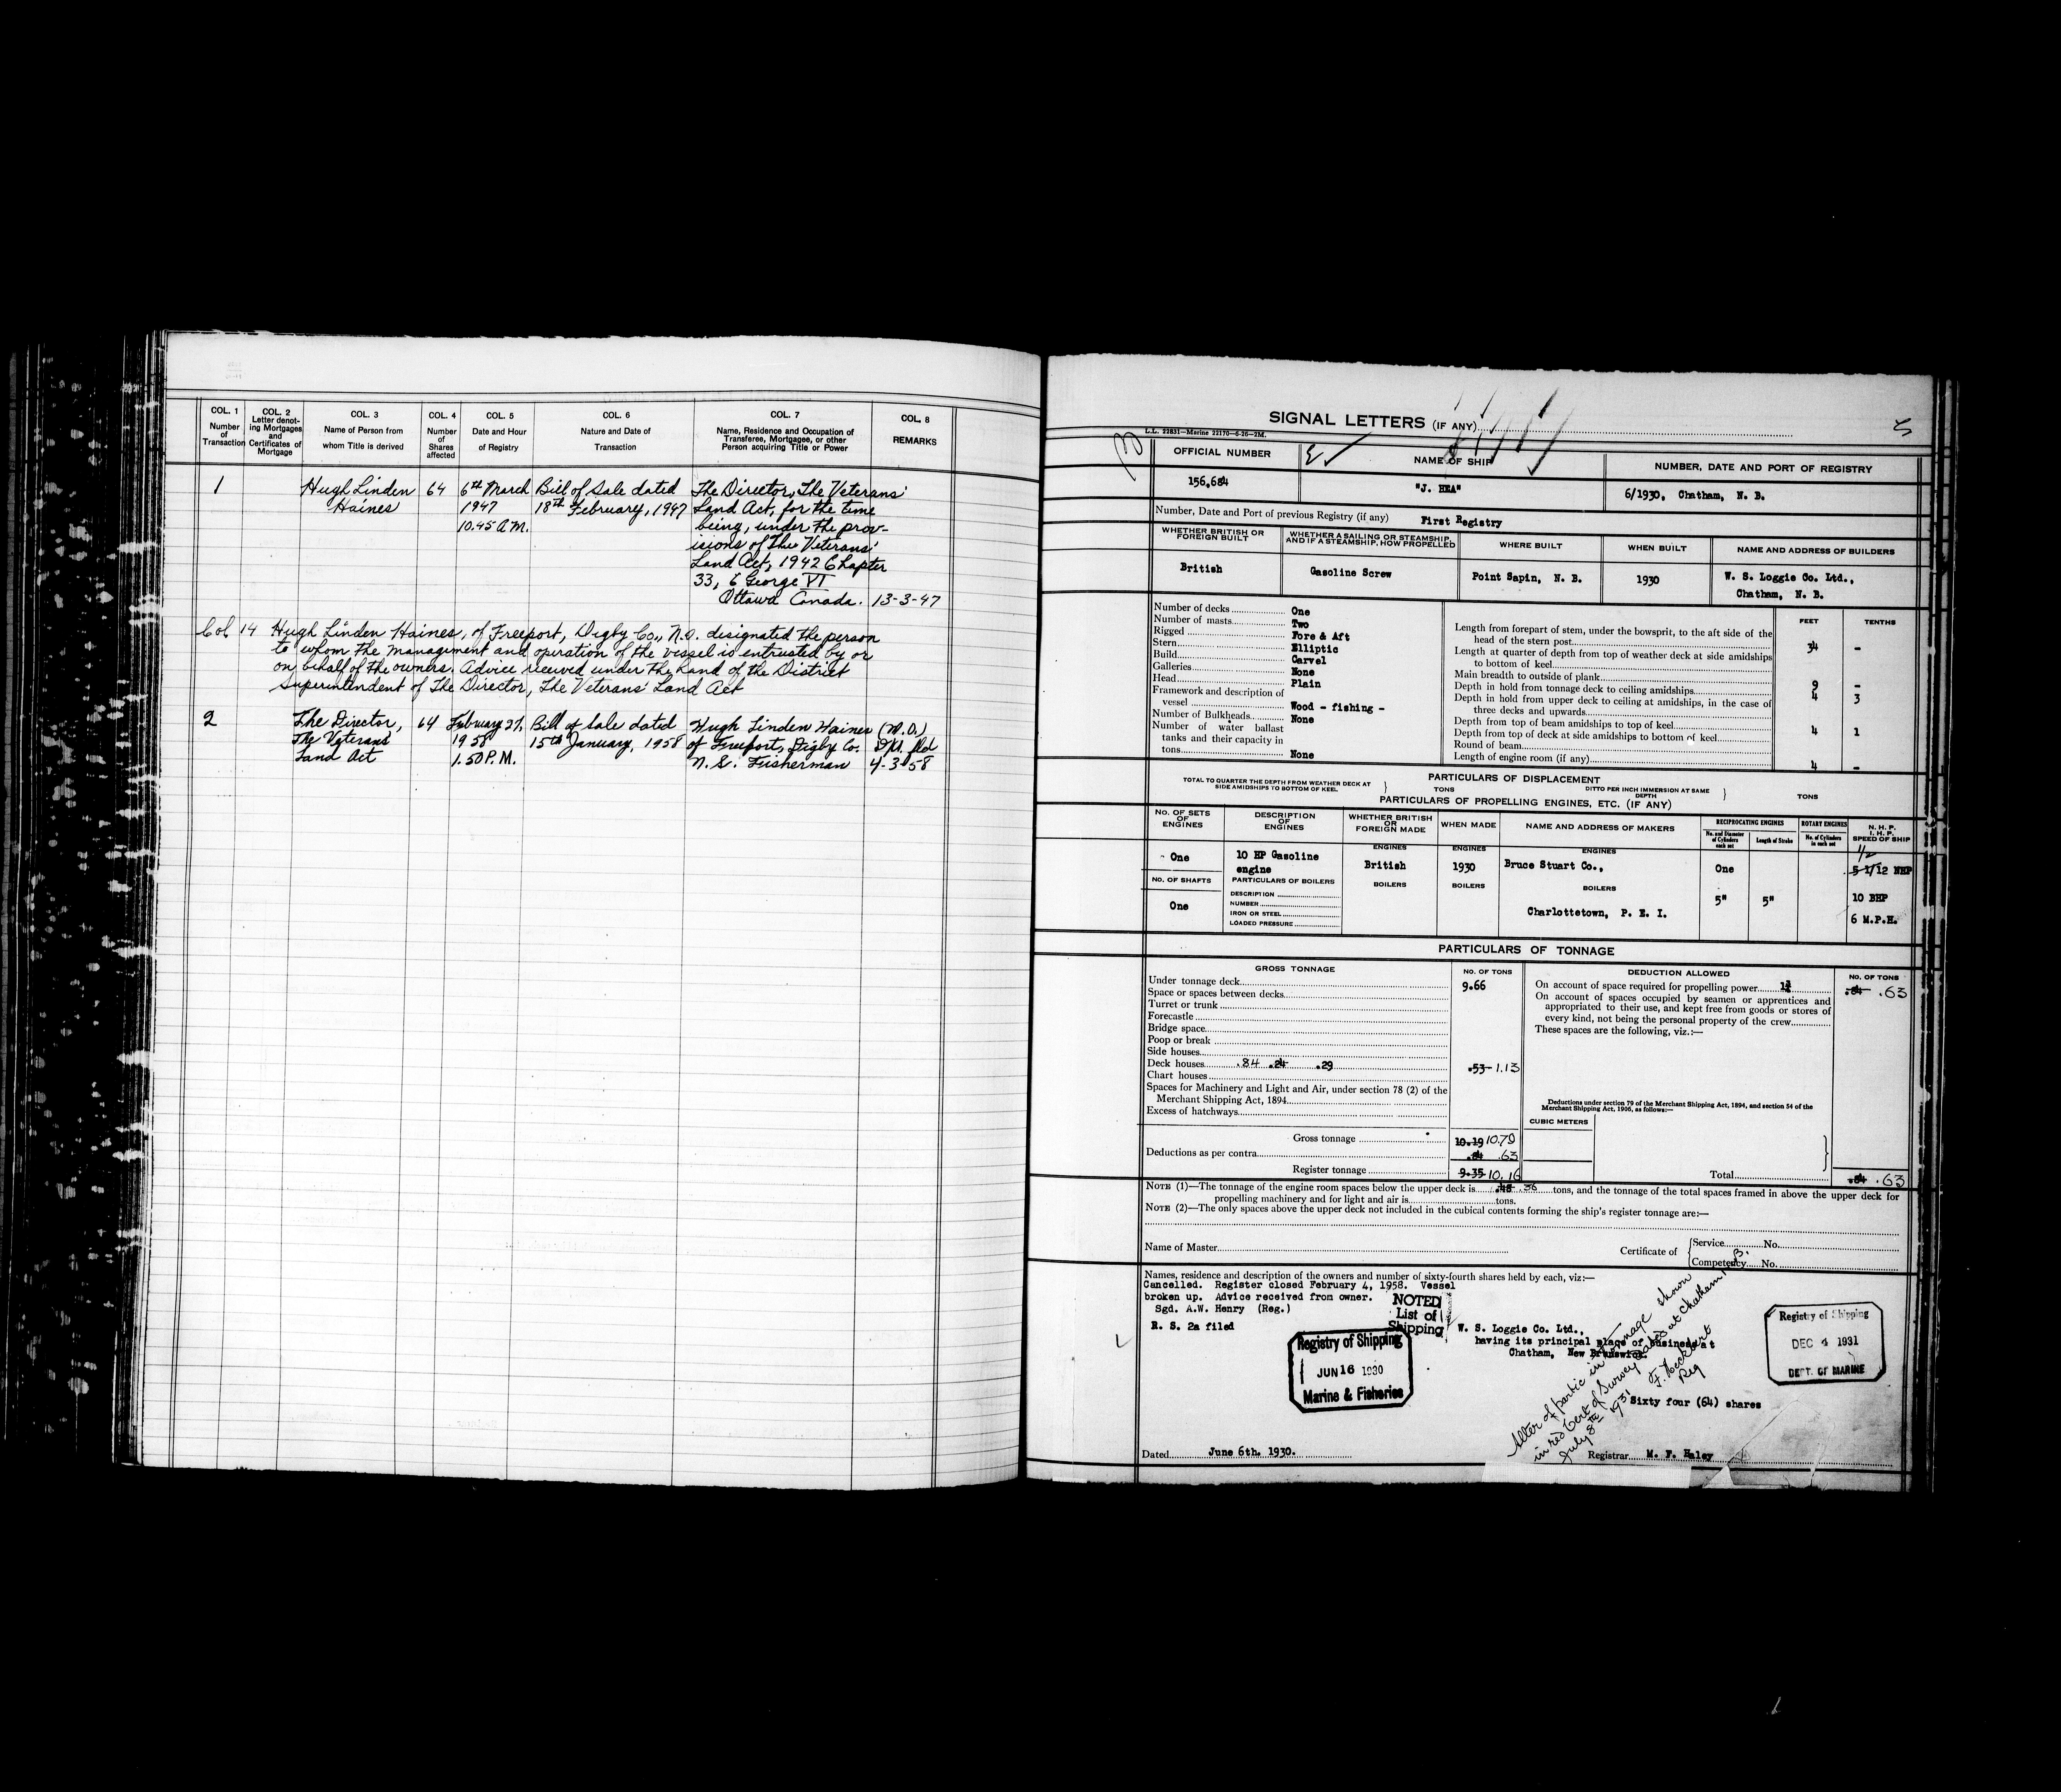 COL. 1 COL. 2 COL. 3 COL. 4 COL. 5 COL. 6 COL. 7 COL. 8
Number of Transaction
Letter denoting Mortgages and Certificates of Mortgage
Name of Person from whom Title is derived
Number of Shares affected
Date and Hour of Registry
Nature and Date of Transaction
Name, Residence and Occupation of Transferee, Mortgagee, or other Person acquiring Title or Power
REMARKS
1 Hugh Linden 64 6th March Bill of Sale dated The Director, The Veterans'
Haines 1947 18th February, 1947 Land Act, for the time
10.45 A.M. being, under the prov-
isions of The Veterans'
Land Act, 1942 Chapter
33, 6 George VI
Ottawa Canada. 13-3-47
Col 14 Hugh Linden Haines, of Freeport, Digby Co., N.S. designated the person
to whom the management and operation of the vessel is entrusted by or
on behalf of the owners. Advice received under the hand of the District
Superintendent of The Director, The Veterans' Land Act
2 The Director, 64 February 27, Bill of Sale dated Hugh Linden Haines (M.O.)
The Veterans' 1958 15th January, 1958 of Freeport, Digby Co.
Land Act 1.50 P.M. N.S. Fisherman 4-3-58
SIGNAL LETTERS (IF ANY)
L.L. 22831—Marine 22170—6-26—2M.
OFFICIAL NUMBER NAME OF SHIP NUMBER, DATE AND PORT OF REGISTRY
156,684 "J. HEA" 6/1930, Chatham, N. B.
Number, Date and Port of previous Registry (if any) First Registry
WHETHER BRITISH OR FOREIGN BUILT
WHETHER A SAILING OR STEAMSHIP, AND IF A STEAMSHIP, HOW PROPELLED
WHERE BUILT
WHEN BUILT
NAME AND ADDRESS OF BUILDERS
British Gasoline Screw Point Sapin, N. B. 1930 W. S. Loggie Co. Ltd.,
Chatham, N. B.
Number of decks One
Number of masts Two
Rigged Fore & Aft
Stern Elliptic
Build Carvel
Galleries None
Head Plain
Framework and description of
vessel Wood - fishing -
Number of Bulkheads None
Number of water ballast
tanks and their capacity in
tons None
FEET TENTHS
Length from forepart of stem, under the bowsprit, to the aft side of the
head of the stern post 34 -
Length at quarter of depth from top of weather deck at side amidships
to bottom of keel
Main breadth to outside of plank 9 -
Depth in hold from tonnage deck to ceiling amidships 4 3
Depth in hold from upper deck to ceiling at amidships, in the case of
three decks and upwards
Depth from top of beam amidships to top of keel 4 1
Depth from top of deck at side amidships to bottom of keel
Round of beam
Length of engine room (if any) 4 -
PARTICULARS OF DISPLACEMENT
TOTAL TO QUARTER THE DEPTH FROM WEATHER DECK AT SIDE AMIDSHIPS TO BOTTOM OF KEEL TONS
DITTO PER INCH IMMERSION AT SAME DEPTH TONS
PARTICULARS OF PROPELLING ENGINES, ETC. (IF ANY)
No. OF SETS OF ENGINES
DESCRIPTION OF ENGINES
WHETHER BRITISH OR FOREIGN MADE
WHEN MADE
NAME AND ADDRESS OF MAKERS
RECIPROCATING ENGINES
No. and Diameter of Cylinders each set
Length of Stroke
ROTARY ENGINES
No. of Cylinders in each set
N. H. P.
I. H. P.
SPEED OF SHIP
ENGINES ENGINES ENGINES
One 10 HP Gasoline engine British 1930 Bruce Stuart Co., One 1/2
5 1/12 NHP
No. OF SHAFTS PARTICULARS OF BOILERS BOILERS BOILERS BOILERS
One 5" 5" 10 BHP
DESCRIPTION
NUMBER
IRON OR STEEL
LOADED PRESSURE
Charlottetown, P. E. I. 6 M.P.H.
PARTICULARS OF TONNAGE
GROSS TONNAGE No. OF TONS
Under tonnage deck 9.66
Space or spaces between decks
Turret or trunk
Forecastle
Bridge space
Poop or break
Side houses
Deck houses .84 .24 .29 .53 1.13
Chart houses
Spaces for Machinery and Light and Air, under section 78 (2) of the
Merchant Shipping Act, 1894
Excess of hatchways
Gross tonnage 10.19 10.79
Deductions as per contra .84 .63
Register tonnage 9.35 10.16
DEDUCTION ALLOWED No. OF TONS
On account of space required for propelling power .84 .63
On account of spaces occupied by seamen or apprentices and
appropriated to their use, and kept free from goods or stores of
every kind, not being the personal property of the crew
These spaces are the following, viz.:—
Deductions under section 79 of the Merchant Shipping Act, 1894, and section 54 of the
Merchant Shipping Act, 1906, as follows:—
CUBIC METERS
Total .84 .63
NOTE (1)—The tonnage of the engine room spaces below the upper deck is .48 .36 tons, and the tonnage of the total spaces framed in above the upper deck for
propelling machinery and for light and air is tons.
NOTE (2)—The only spaces above the upper deck not included in the cubical contents forming the ship's register tonnage are:—
Name of Master Certificate of Service No.
Competency No.
Names, residence and description of the owners and number of sixty-fourth shares held by each, viz:—
Cancelled. Register closed February 4, 1958. Vessel
broken up. Advice received from owner.
Sgd. A.W. Henry (Reg.)
R. S. 2a filed
NOTED
List of
Shipping
W. S. Loggie Co. Ltd.,
having its principal place of business at
Chatham, New Brunswick
Registry of Shipping
JUN 16 1930
Marine & Fisheries
Registry of Shipping
DEC 4 1931
DEPT. OF MARINE
Alter of partic in tonnage shown
in red Cert of Survey dated at Chatham N.B.
July 8th 1931
Reg
Sixty four (64) shares
Dated June 6th. 1930.
Registrar M. F. Haley